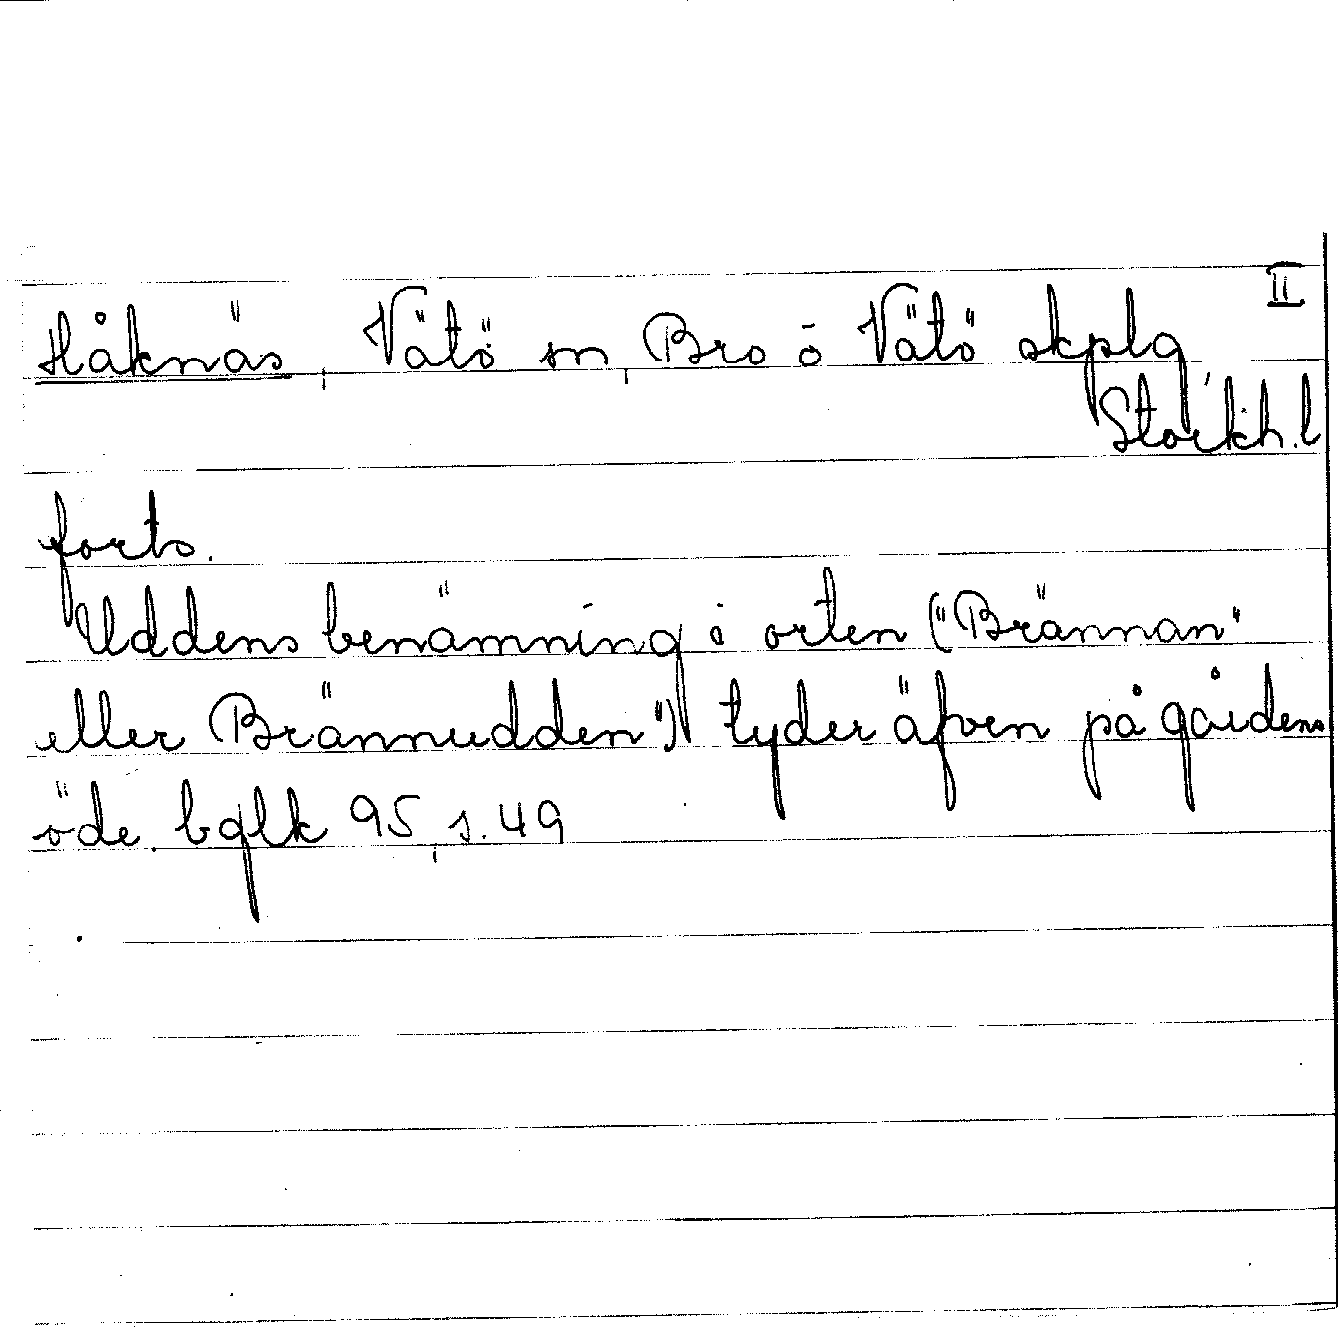 II
Håknäs, Vätö sn, Bro o Vätö skplg,
Stockh. l
forts.
Uddens benämning i orten ("Brännan"
eller Brännudden") tyder äfven på gårdens
öde. bglk 95, s. 49